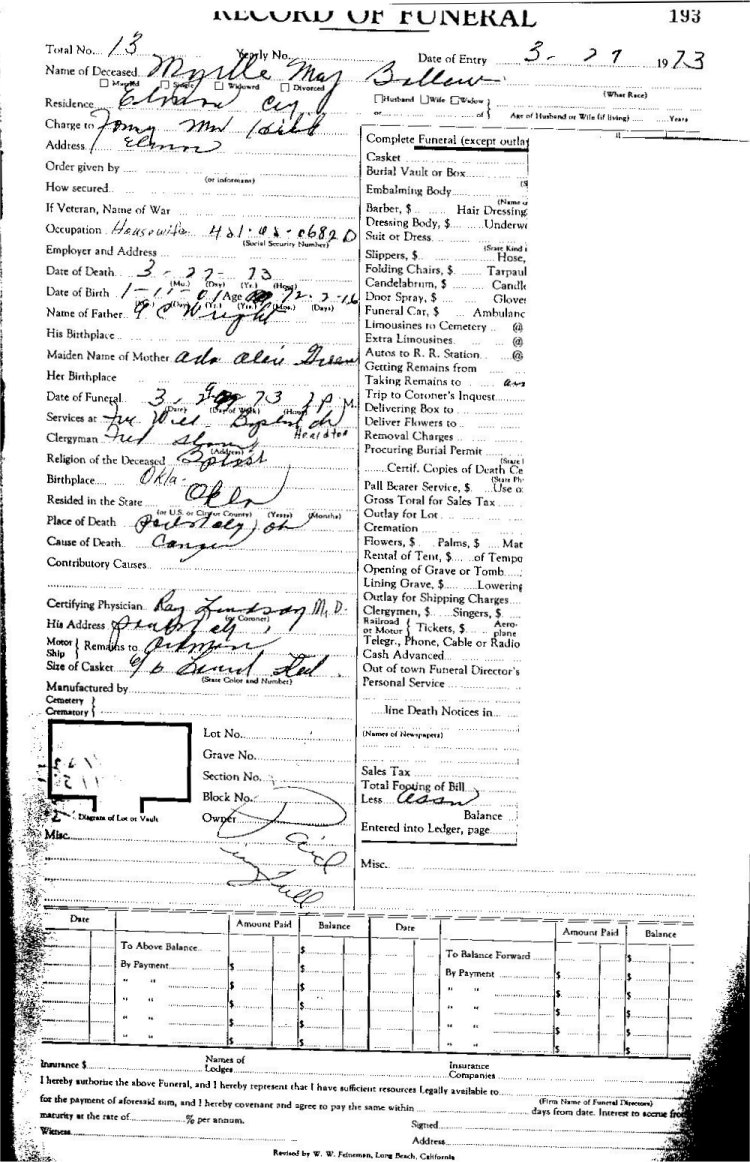 RECORD OF FUNERAL 193
Total No. 13 Yearly No. Date of Entry 3-27 1973
Name of Deceased Myrtle May Ballew
☐ Married ☐ Single ☐ Widowed ☐ Divorced
(What Race)
Residence
☐ Husband ☐ Wife ☐ Widow
or of Age of Husband or Wife (if living) Years
Charge to
Address
Order given by
(or informant)
How secured
If Veteran, Name of War
Occupation Housewife
(Social Security Number)
Employer and Address
Date of Death 3-27-73
(Mo.) (Day) (Yr.) (Hour)
Date of Birth 1-11-01 Age 72-2-16
(Mo.) (Day) (Yr.) (Yrs.) (Mos.) (Days)
Name of Father Wright
His Birthplace
Maiden Name of Mother Ada
Her Birthplace
Date of Funeral 3- 73 2 P. M.
(Date) (Day of Week) (Hour)
Services at Baptist ch
Healdton
Clergyman Fred
(Address)
Religion of the Deceased Baptist
Birthplace Okla.
Resided in the State Okla
(or U.S. or City or County) (Years) (Months)
Place of Death
Cause of Death Cancer
Contributory Causes
Certifying Physician Ray Lindsay M.D.
(or Coroner)
His Address
Motor Ship } Remains to Ardmore
Size of Casket 6/6
(State Color and Number)
Manufactured by
Cemetery
Crematory
Lot No.
Grave No.
Section No.
Block No.
Diagram of Lot or Vault
Owner
Paid
in full
Misc.
Complete Funeral (except outlay
Casket
Burial Vault or Box
(S
Embalming Body
(Name o
Barber, $ Hair Dressing
Dressing Body, $ Underwe
Suit or Dress
(State Kind
Slippers, $ Hose,
Folding Chairs, $ Tarpaul
Candelabrum, $ Candle
Door Spray, $ Glove
Funeral Car, $ Ambulanc
Limousines to Cemetery @
Extra Limousines @
Autos to R. R. Station @
Getting Remains from
Taking Remains to
Trip to Coroner's Inquest
Delivering Box to
Deliver Flowers to
Removal Charges
Procuring Burial Permit
(State
Certif. Copies of Death Ce
(State Ph
Pall Bearer Service, $ Use o
Gross Total for Sales Tax
Outlay for Lot
Cremation
Flowers, $ Palms, $ Mat
Rental of Tent, $ of Tempo
Opening of Grave or Tomb
Lining Grave, $ Lowering
Outlay for Shipping Charges
Clergymen, $ Singers, $
Railroad or Motor } Tickets, $ Aero-plane
Telegr., Phone, Cable or Radio
Cash Advanced
Out of town Funeral Director's
Personal Service
line Death Notices in
(Names of Newspapers)
Sales Tax
Total Footing of Bill
Less Assn
Balance
Entered into Ledger, page
Misc.
Date Amount Paid Balance Date Amount Paid Balance
To Above Balance $ To Balance Forward $
By Payment $ $ By Payment $ $
" " $ $ " " $ $
" " $ $ " " $ $
" " $ $ " " $ $
" " $ $ " " $ $
Insurance $ Names of Lodges Insurance Companies
I hereby authorize the above Funeral, and I hereby represent that I have sufficient resources Legally available to
(Firm Name of Funeral Directors)
for the payment of aforesaid sum, and I hereby covenant and agree to pay the same within days from date. Interest to accrue fro
maturity at the rate of % per annum. Signed
Witness Address
Revised by W. W. Feineman, Long Beach, California